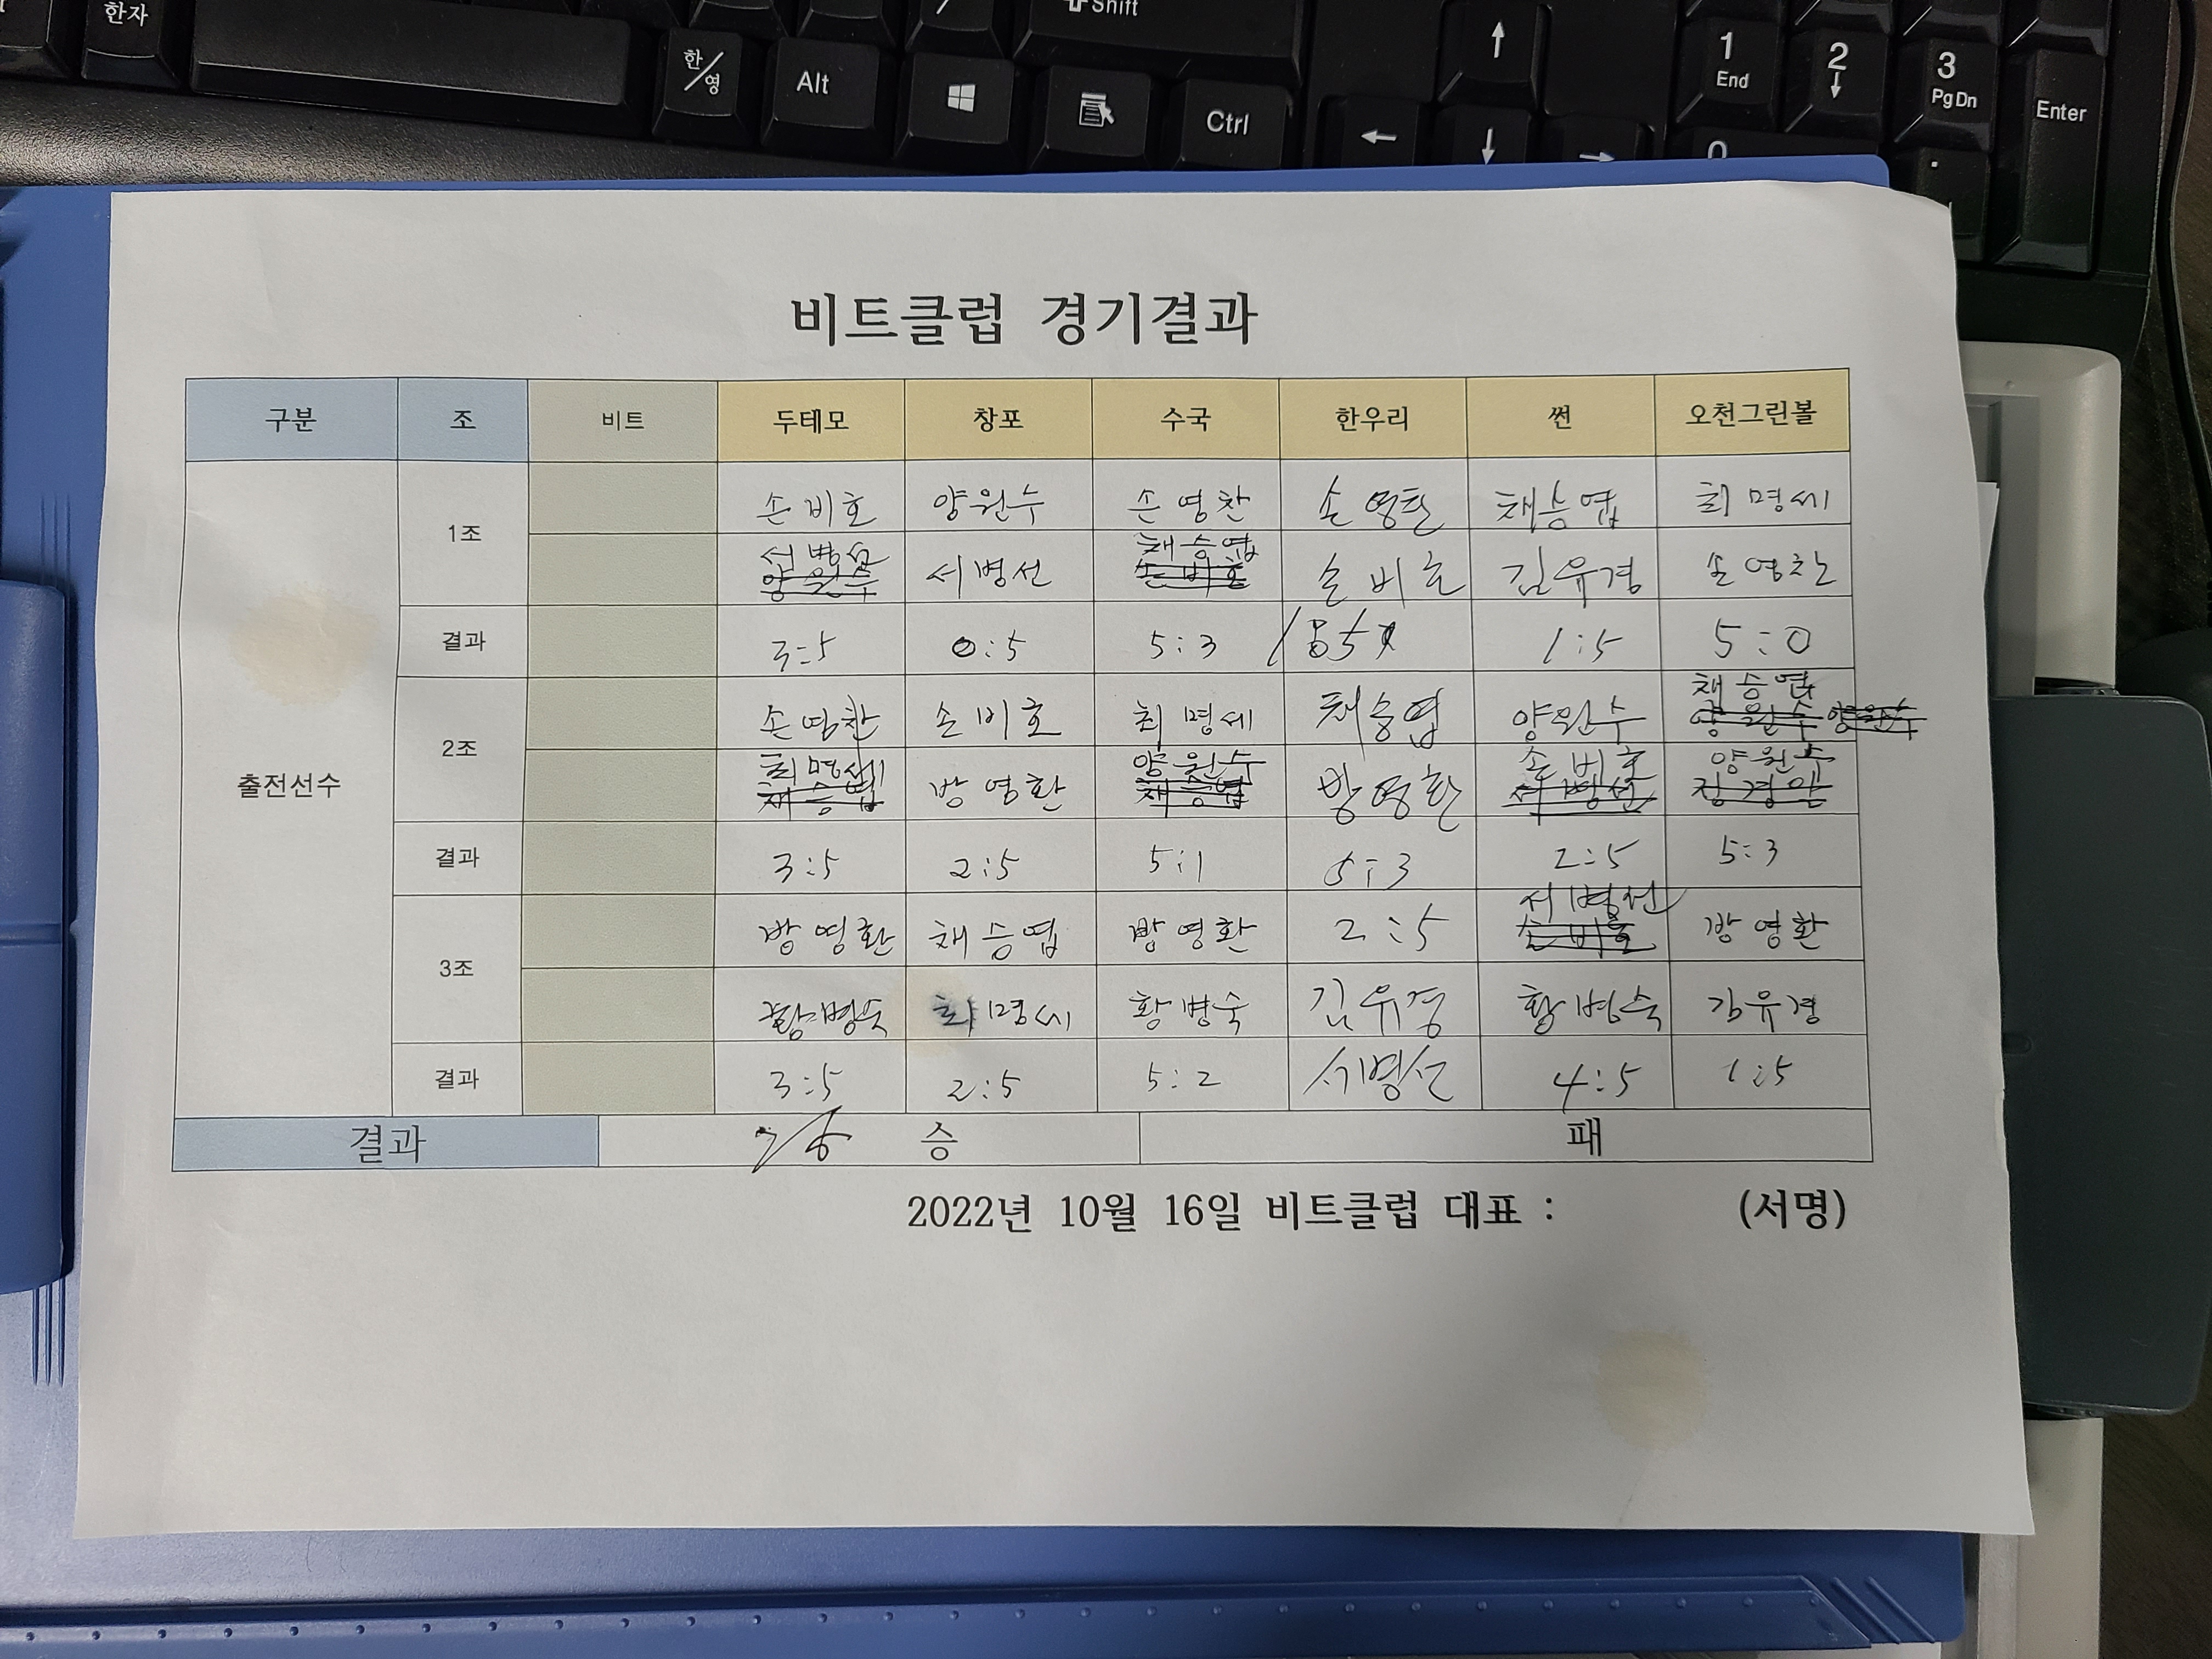 한자
Shift
한/영
Alt
Ctrl
1
End
2
3
PgDn
Enter
0
비트클럽 경기결과
구분 조 비트 두테모 창포 수국 한우리 썬 오천그린볼
손비호 양원수 손영찬 손영찬 채승엽 최명세
1조
서병선 서병선 채승엽 손비호 김유경 손영찬
양원수 손비호
결과 3:5 0:5 5:3 1:5 5:0
채승엽
손영찬 손비호 최명세 채승엽 양원수 양원수 양원수
2조
출전선수
최명세 방영환 양원수 방영환 손비호 양원수
채승엽 채승엽 서병선
결과 3:5 2:5 5:1 5:3 2:5 5:3
서병선
방영환 채승엽 방영환 2:5 손비호 방영환
3조
황병숙 최명세 황병숙 김유경 황병숙 김유경
결과 3:5 2:5 5:2 서병선 4:5 1:5
결과 승 패
2022년 10월 16일 비트클럽 대표 : (서명)